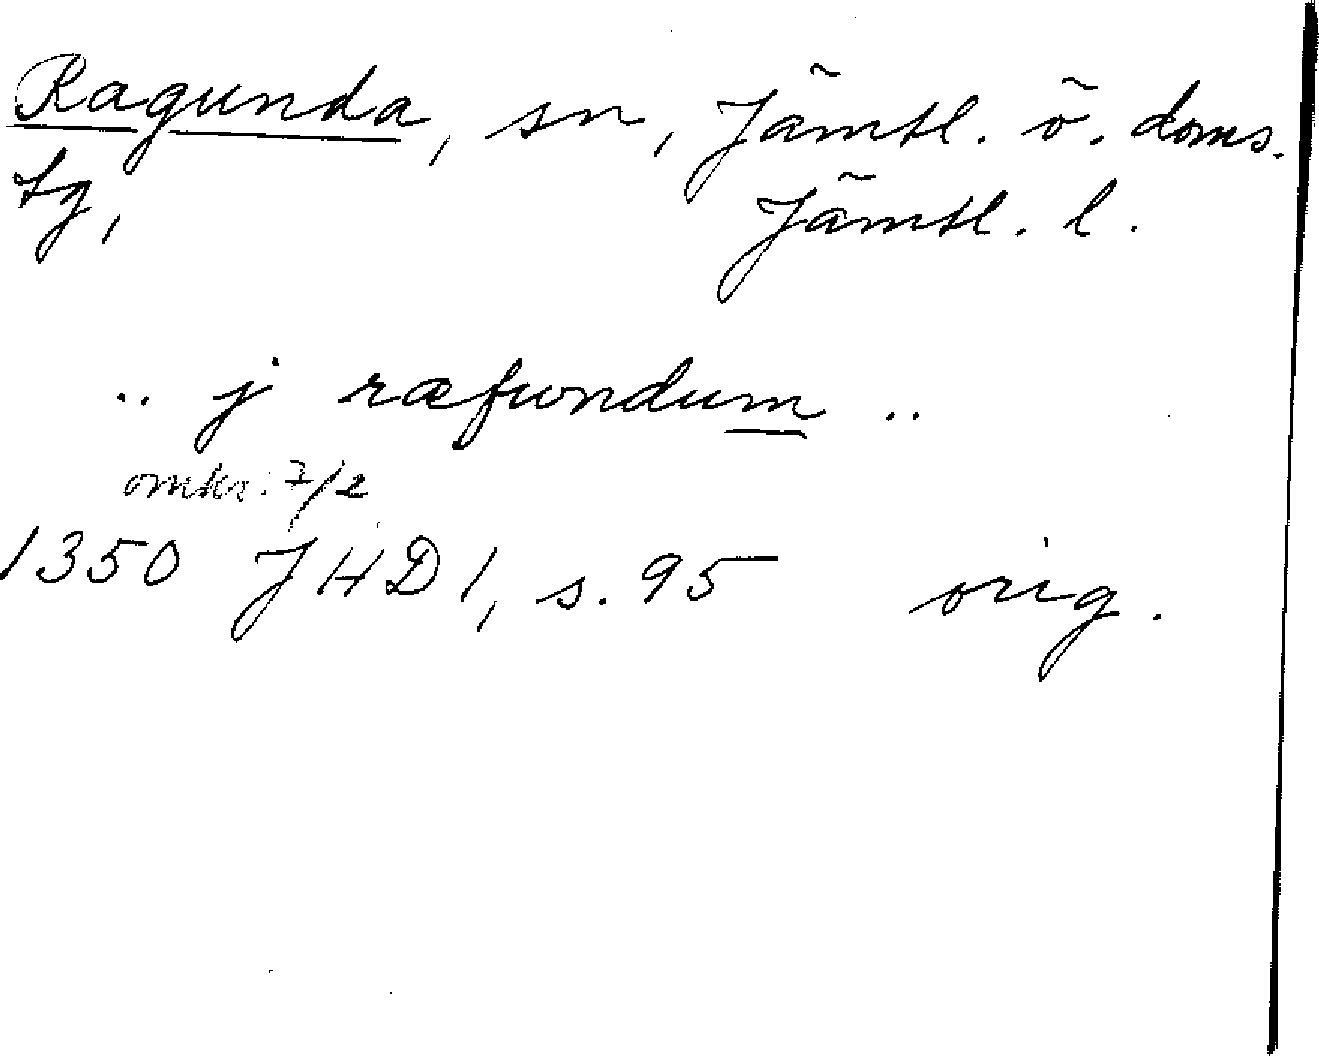 Ragunda, sn, Jämtl. ö. doms.
tg, Jämtl. l.
.. j ræfwndum ..
omkr. 7/2
1350 JHD 1, s. 95 orig.